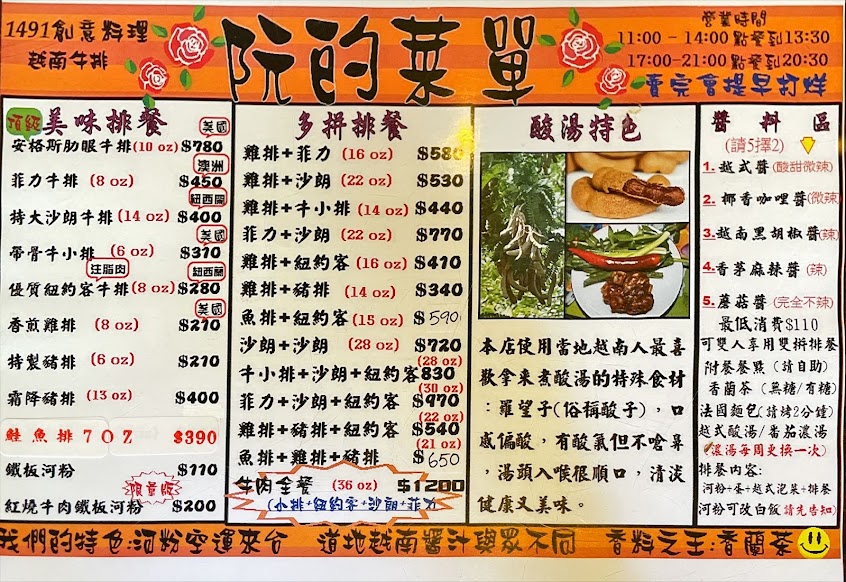 1491創意料理
越南牛排
阮的菜單
營業時間
11:00 - 14:00 點餐到13:30
17:00-21:00 點餐到20:30
賣完會提早打烊
頂級 美味排餐
美國
安格斯肋眼牛排(10 oz) $780
澳洲
菲力牛排 (8 oz) $450
紐西蘭
特大沙朗牛排(14 oz) $400
美國
帶骨牛小排 (6 oz) $310
注脂肉 紐西蘭
優質紐約客牛排(8 oz) $280
美國
香煎雞排 (8 oz) $270
特製豬排 (6 oz) $210
霜降豬排 (13 oz) $400
鮭魚排7OZ $390
鐵板河粉 $110
限量版
紅燒牛肉鐵板河粉 $200
多拼排餐
雞排+菲力 (16 oz) $580
雞排+沙朗 (22 oz) $530
雞排+牛小排 (14 oz) $440
菲力+沙朗 (22 oz) $770
雞排+紐約客 (16 oz) $410
雞排+豬排 (14 oz) $340
魚排+紐約客 (15 oz) $590
沙朗+沙朗 (28 oz) $720
(28 oz)
牛小排+沙朗+紐約客830
(30 oz)
菲力+沙朗+紐約客 $970
(22 oz)
雞排+牛小排+紐約客 $540
(21 oz)
魚排+雞排+豬排 $650
牛肉全餐 (36 oz) $1200
(小排+紐約客+沙朗+菲力)
酸湯特色
本店使用當地越南人最喜
歡拿來煮酸湯的特殊食材
：羅望子(俗稱酸子)，口
感偏酸，有酸氣但不嗆鼻
，湯頭入喉很順口，清淡
健康又美味。
醬料區
(請5擇2)
1.越式醬(酸甜微辣)
2.椰香咖哩醬(微辣)
3.越南黑胡椒醬(辣)
4.香茅麻辣醬(辣)
5.蘑菇醬(完全不辣)
最低消費$110
可雙人享用雙拼排餐
附餐餐點(請自助)
香蘭茶(無糖/有糖)
法國麵包(請烤2分鐘)
越式酸湯/蕃茄濃湯
(濃湯每周更換一次)
排餐內容:
河粉+蛋+越式泡菜+排餐
河粉可改白飯(請先告知)
我們的特色:河粉空運來台 道地越南醬汁與眾不同 香料之王:香蘭茶